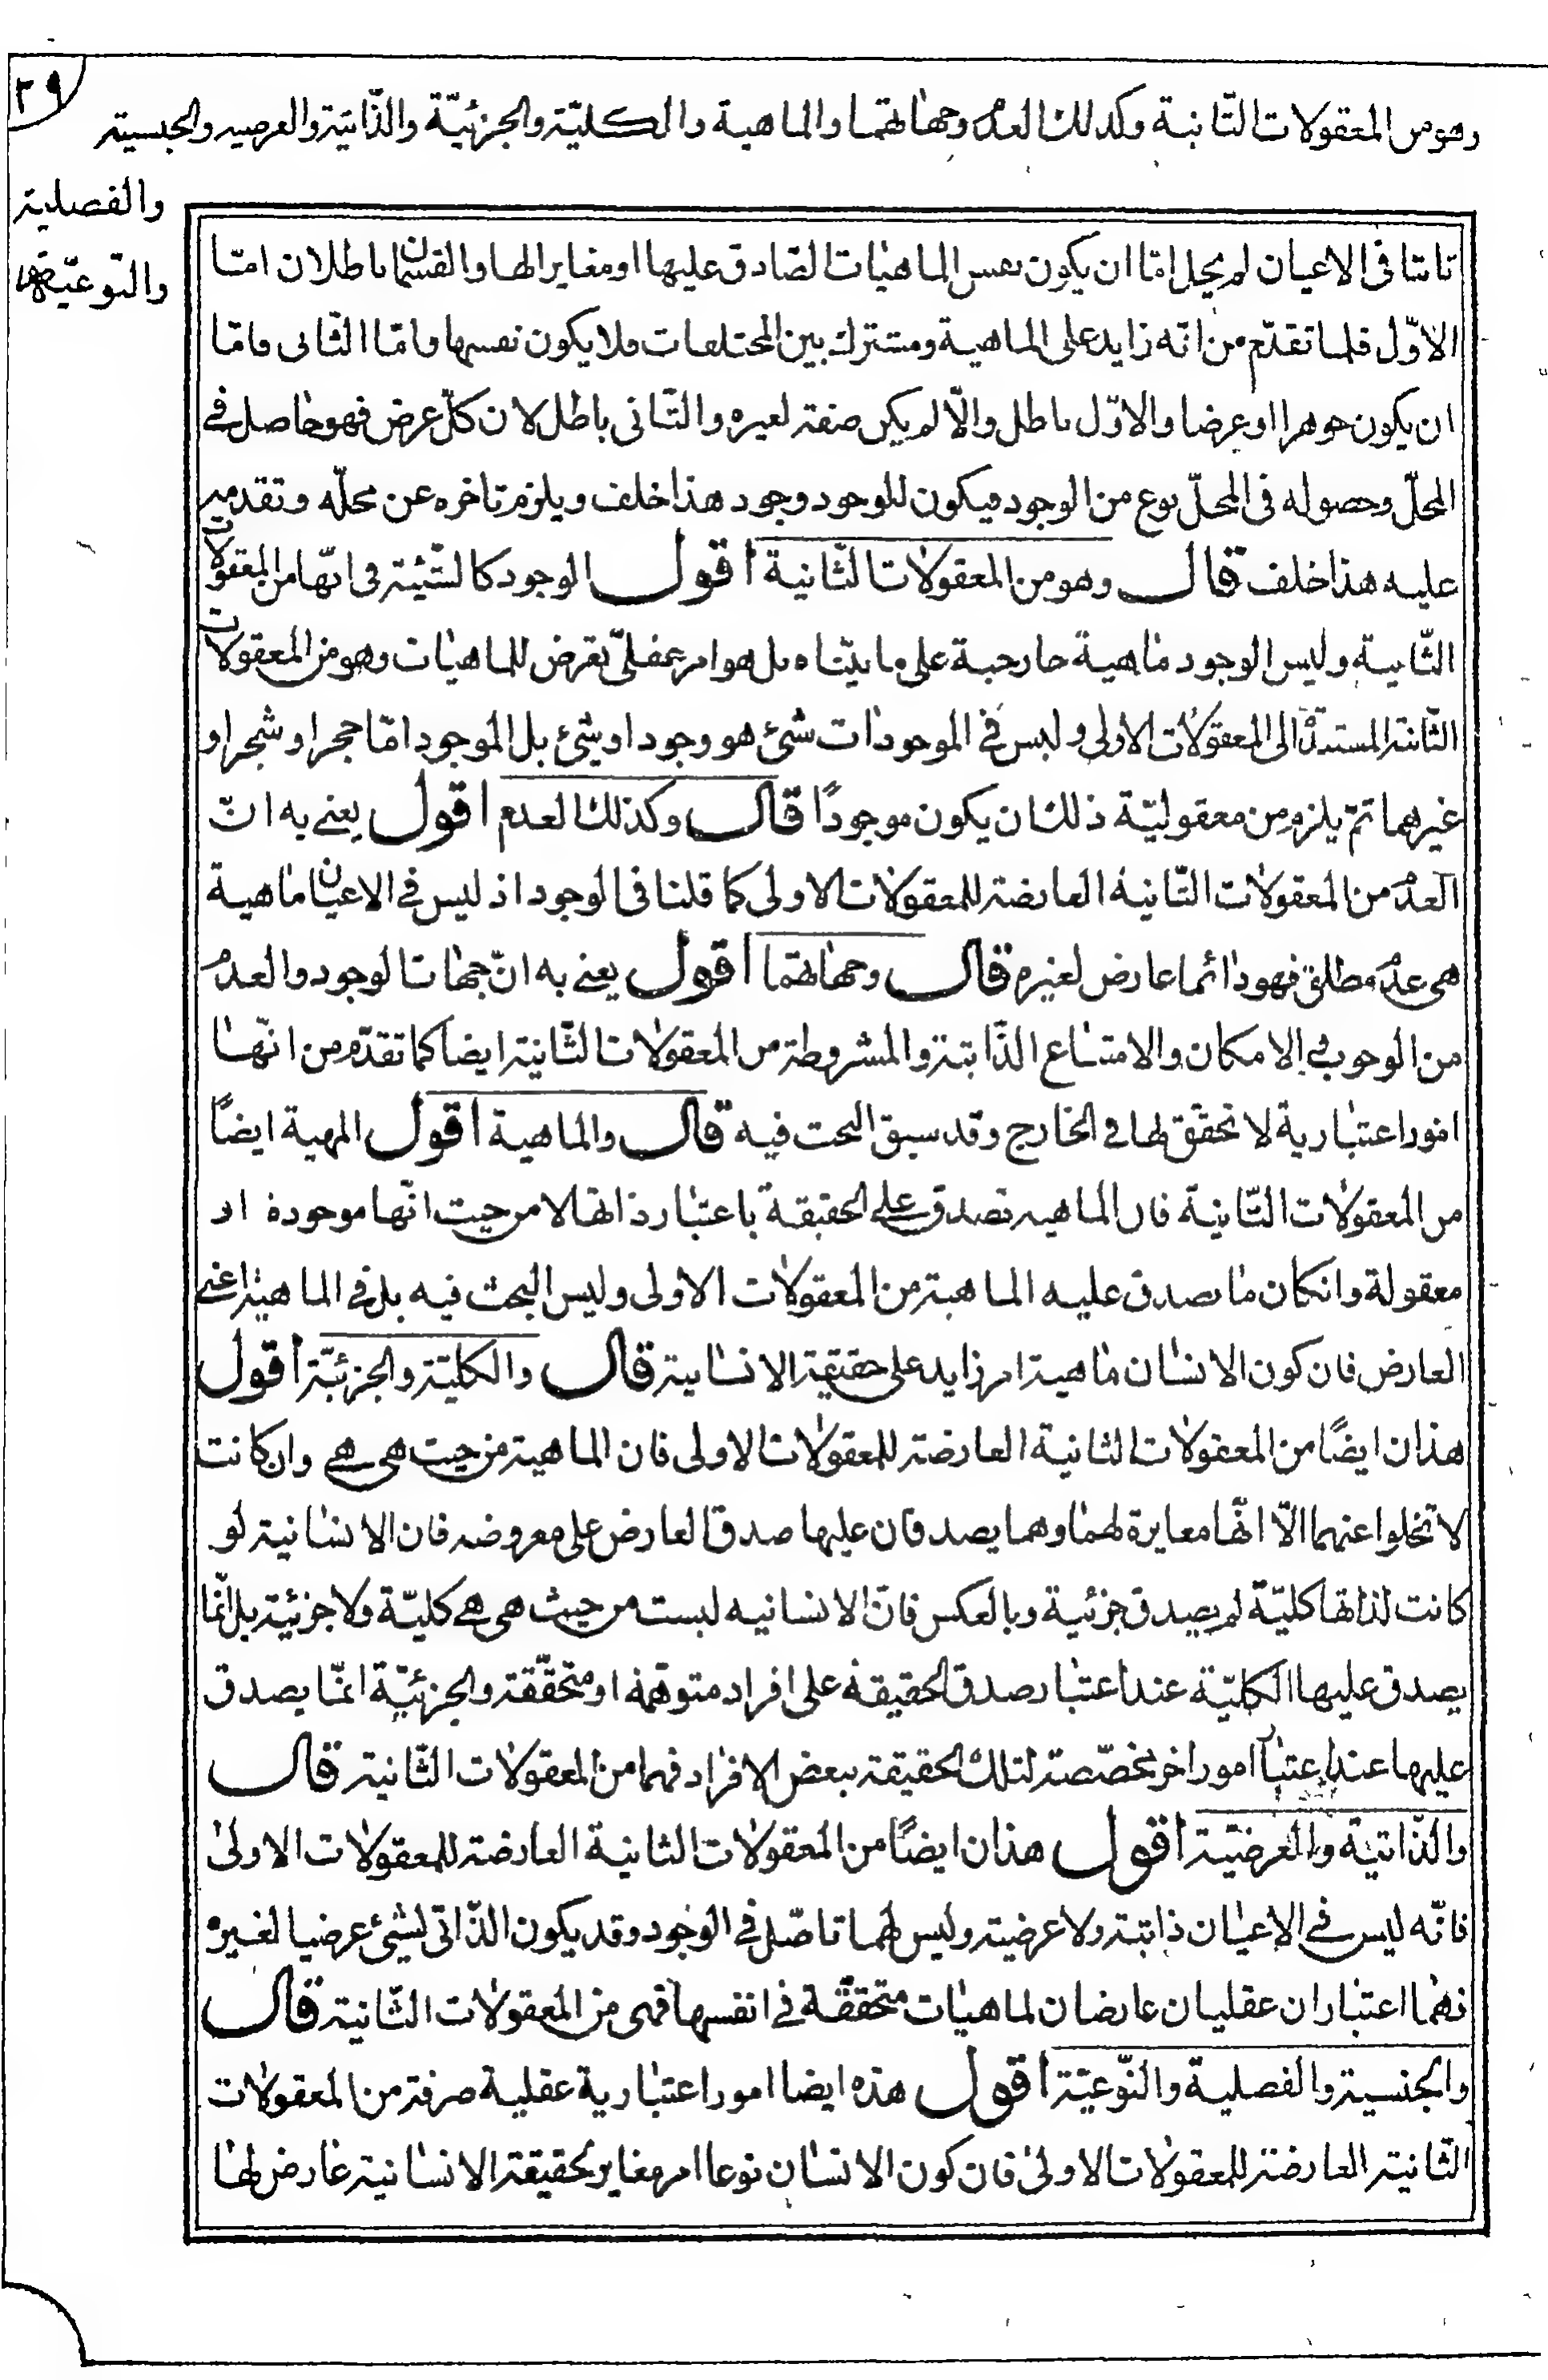 ٣٩
وهو من المعقولات الثانية وكذلك العدم وجهاتهما والماهية والكلية والجزئية والذاتية والعرضية والجنسية
والفصلية
والنوعية
ثابتا في الاعيان لم يخل اما ان يكون نفس الماهيات الصادق عليها او مغايرا لها والقسمان باطلان امّا
الاوّل فلما تقدّم من انّه زايد على الماهية ومشترك بين المختلفات فلا يكون نفسها وامّا الثّانى فامّا
ان يكون جوهرا او عرضا والاوّل باطل والّا لم يكن صفة لغيره والثّانى باطل لان كلّ عرض فهو حاصل في
المحلّ وحصوله في المحلّ نوع من الوجود فيكون للوجود وجود هذا خلف ويلزم تاخره عن محلّه وتقدمه
عليه هذا خلف قال وهو من المعقولات الثّانية اقول الوجود كالشّيئية فى انّها من المعقولات
الثّانية وليس الوجود ماهية خارجية على ما بيّنّاه بل هو امر عقلىّ يعرض للماهيات وهو من المعقولات
الثّانية المستندة الى المعقولات الاولى وليس في الموجودات شئ هو وجود او شئ بل الموجود امّا حجر او شجر او
غيرهما ثمّ يلزم من معقوليّة ذلك ان يكون موجودًا قال وكذلك العدم اقول يعنى به انّ
العدم من المعقولات الثّانية العارضة للمعقولات الاولى كما قلنا فى الوجود اذ ليس في الاعيان ماهية
هى عدم مطلق فهو دائما عارض لغيره قال وجهاتهما اقول يعنى به انّ جهات الوجود والعدم
من الوجوب والامكان والامتناع الذّاتية والمشروطة من المعقولات الثّانية ايضا كما تقدّم من انّها
امور اعتبارية لا تحقّق لها في الخارج وقد سبق البحث فيه قال والماهية اقول المهية ايضًا
من المعقولات الثّانية فان الماهية تصدق على الحقيقة باعتبار ذاتها لا من حيث انّها موجودة او
معقولة وانكان ما يصدق عليه الماهية من المعقولات الاولى وليس البحث فيه بل في الماهية اعنى
العارض فان كون الانسان ماهية امر زايد على حقيقة الانسانية قال والكليّة والجزئيّة اقول
هذان ايضًا من المعقولات الثانية العارضة للمعقولات الاولى فان الماهية من حيث هى هى وان كانت
لا تخلوا عنهما الّا انّها مغايرة لهما وهما يصدقان عليها صدق العارض على معروضه فان الانسانية لو
كانت لذاتها كليّة لم يصدق جزئية وبالعكس فانّ الانسانيه ليست من حيث هى هى كليّة ولا جزئية بل انّما
يصدق عليها الكليّة عند اعتبار صدق الحقيقة على افراد متوهّمة او متحقّقة والجزئيّة انّما يصدق
عليها عند اعتبار امور اخر مخصّصة لتلك الحقيقة ببعض الافراد فهما من المعقولات الثّانية قال
والذّاتيّة والعرضيّة اقول هذان ايضًا من المعقولات الثانية العارضة للمعقولات الاولى
فانّه ليس في الاعيان ذاتية ولا عرضية وليس لهما تاصّل في الوجود وقد يكون الذّاتى لشئ عرضيا لغيره
فهما اعتباران عقليان عارضان لماهيات متحققّة في انفسها فهى من المعقولات الثّانية قال
والجنسية والفصلية والنّوعيّة اقول هذه ايضا امور اعتبارية عقلية صرفة من المعقولات
الثّانية العارضة للمعقولات الاولى فان كون الانسان نوعا امر مغاير لحقيقة الانسانية عارض لها